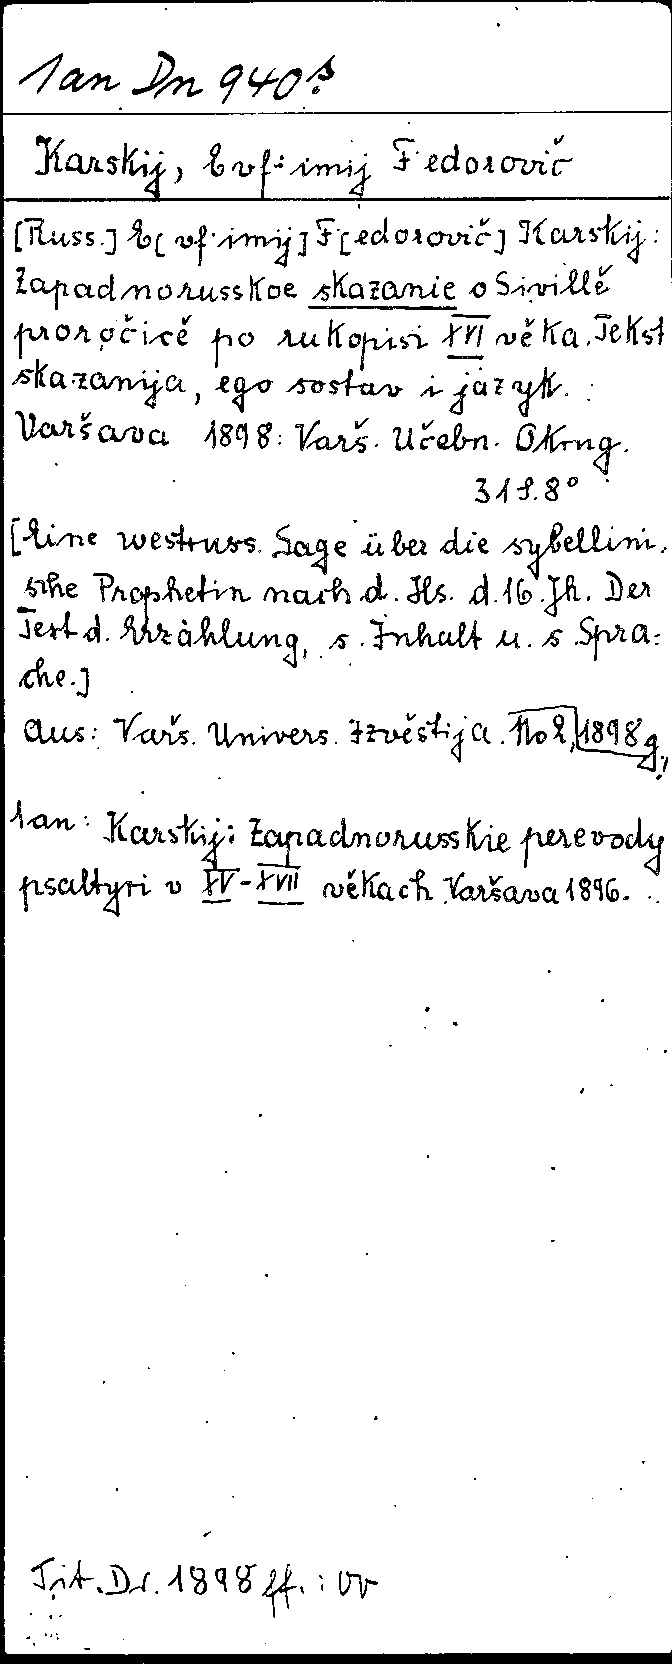 1an Dn 940s
Karskij, Evfimij Fedorovič
[Russ.] E[vfimij] F[edorovič] Karskij:
Zapadnorusskoe skazanie o Sivillě
proročicě po rukopisi XVI věka. Tekst
skazanija, ego sostav i jazyk.
Varšava 1898: Varš. Učebn. Okrug.
31 S. 8°
[Eine westruss. Sage über die sybellini-
sche Prophetin nach d. Hs. d. 16. Jh. Der
Text d. Erzählung, s. Inhalt u. s. Spra-
che.]
Aus: Varš. Univers. Izvěstija. No 2, 1898 g.,
1an: Karskij: Zapadnorusskie perevody
psaltyri v XV-XVII věkach. Varšava 1896.
Tit. Dr. 1898 ff. :